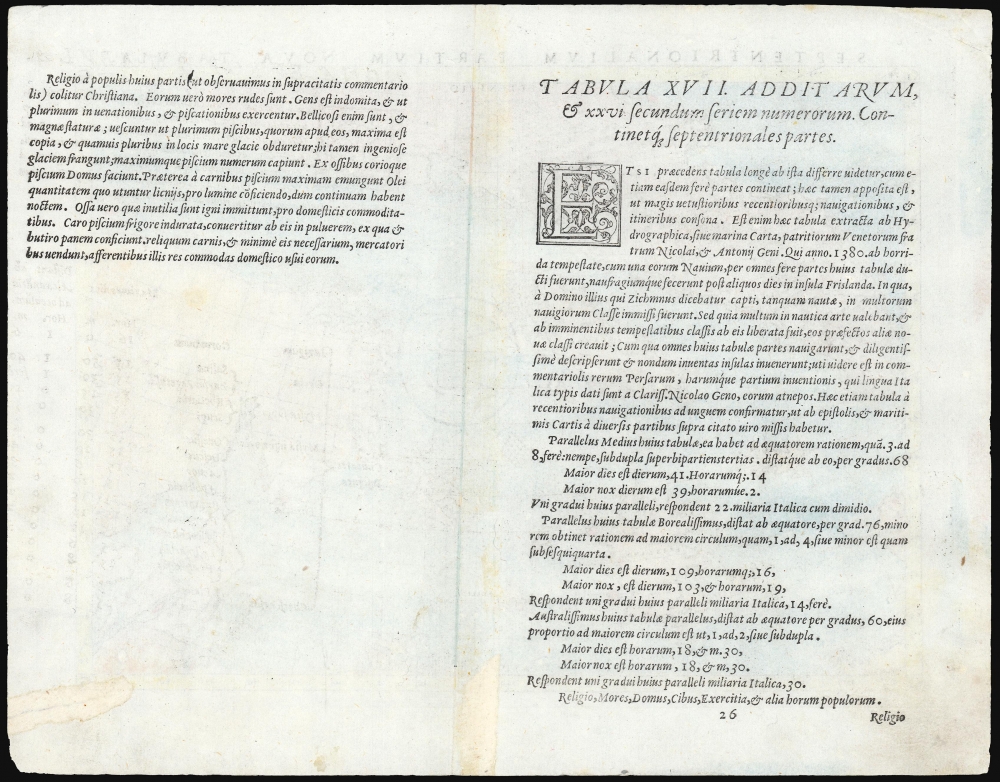 Religio à populis huius partis (ut obseruauimus in supracitatis commentario
lis) colitur Christiana. Eorum uerò mores rudes sunt. Gens est indomita, & ut
plurimum in uenationibus, & piscationibus exercentur. Bellicosi enim sunt, &
magnæ staturæ; uescuntur ut plurimum piscibus, quorum apud eos, maxima est
copia, & quamuis pluribus in locis mare glacie obduretur; hi tamen ingeniose
glaciem frangunt; maximumque piscium numerum capiunt. Ex ossibus corioque
piscium Domus faciunt. Præterea à carnibus piscium maximam emungunt Olei
quantitatem quo utuntur licnijs, pro lumine cõficiendo, dum continuam habent
noctem. Ossa uero quæ inutilia sunt igni immittunt, pro domesticis commodita-
tibus. Caro piscium frigore indurata, conuertitur ab eis in puluerem, ex qua &
butiro panem conficiunt. reliquum carnis, & minimè eis necessarium, mercatori
bus uendunt, afferentibus illis res commodas domestico usui eorum.
TABVLA XVII. ADDITARVM,
& xxvi secundum seriem numerorum. Con-
tinetq́; septentrionales partes.
ETSI præcedens tabula longè ab ista differre uidetur, cum e-
tiam easdem ferè partes contineat; hæc tamen apposita est,
ut magis uetustioribus recentioribusq; nauigationibus, &
itineribus consona. Est enim hæc tabula extracta ab Hy-
drographica, siue marina Carta, patritiorum Venetorum fra
trum Nicolai, & Antonij Geni. Qui anno. 1380. ab horri-
da tempestate, cum una eorum Nauium, per omnes fere partes huius tabulæ du-
cti fuerunt, naufragiumque fecerunt post aliquos dies in insula Frislanda. In qua,
à Domino illius qui Zichmnus dicebatur capti, tanquam nautæ, in multorum
nauigiorum Classe immissi fuerunt. Sed quia multum in nautica arte ualebant, &
ab imminentibus tempestatibus classis ab eis liberata fuit, eos præfectos aliæ no-
uæ classi creauit; Cum qua omnes huius tabulæ partes nauigarunt, & diligentis-
simè descripserunt & nondum inuentas insulas inuenerunt; uti uidere est in com-
mentariolis rerum Persarum, harumque partium inuentionis, qui lingua Ita
lica typis dati sunt a Clariss. Nicolao Geno, eorum atnepos. Hæc etiam tabula à
recentioribus nauigationibus ad unguem confirmatur, ut ab epistolis, & mariti-
mis Cartis à diuersis partibus supra citato uiro missis habetur.
Parallelus Medius huius tabulæ, ea habet ad æquatorem rationem, quã. 3. ad
8, ferè: nempe, subdupla superbipartiens tertias. distatque ab eo, per gradus. 68
Maior dies est dierum, 41. Horarumq́;. 14
Maior nox dierum est 39, horarumue. 2.
Vni gradui huius paralleli, respondent 22. miliaria Italica cum dimidio.
Parallelus huius tabulæ Borealissimus, distat ab æquatore, per grad. 76, mino
rem obtinet rationem ad maiorem circulum, quam, 1, ad, 4, siue minor est quam
subsesquiquarta.
Maior dies est dierum, 109, horarumq́;, 16,
Maior nox, est dierum, 103, & horarum, 19,
Respondent uni gradui huius paralleli miliaria Italica, 14, ferè.
Australissimus huius tabulæ parallelus, distat ab æquatore per gradus, 60, eius
proportio ad maiorem circulum est ut, 1, ad, 2, siue subdupla.
Maior dies est horarum, 18, & m. 30,
Maior nox est horarum, 18, & m, 30.
Respondent uni gradui huius paralleli miliaria Italica, 30.
Religio, Mores, Domus, Cibus, Exercitia, & alia horum populorum.
26
Religio